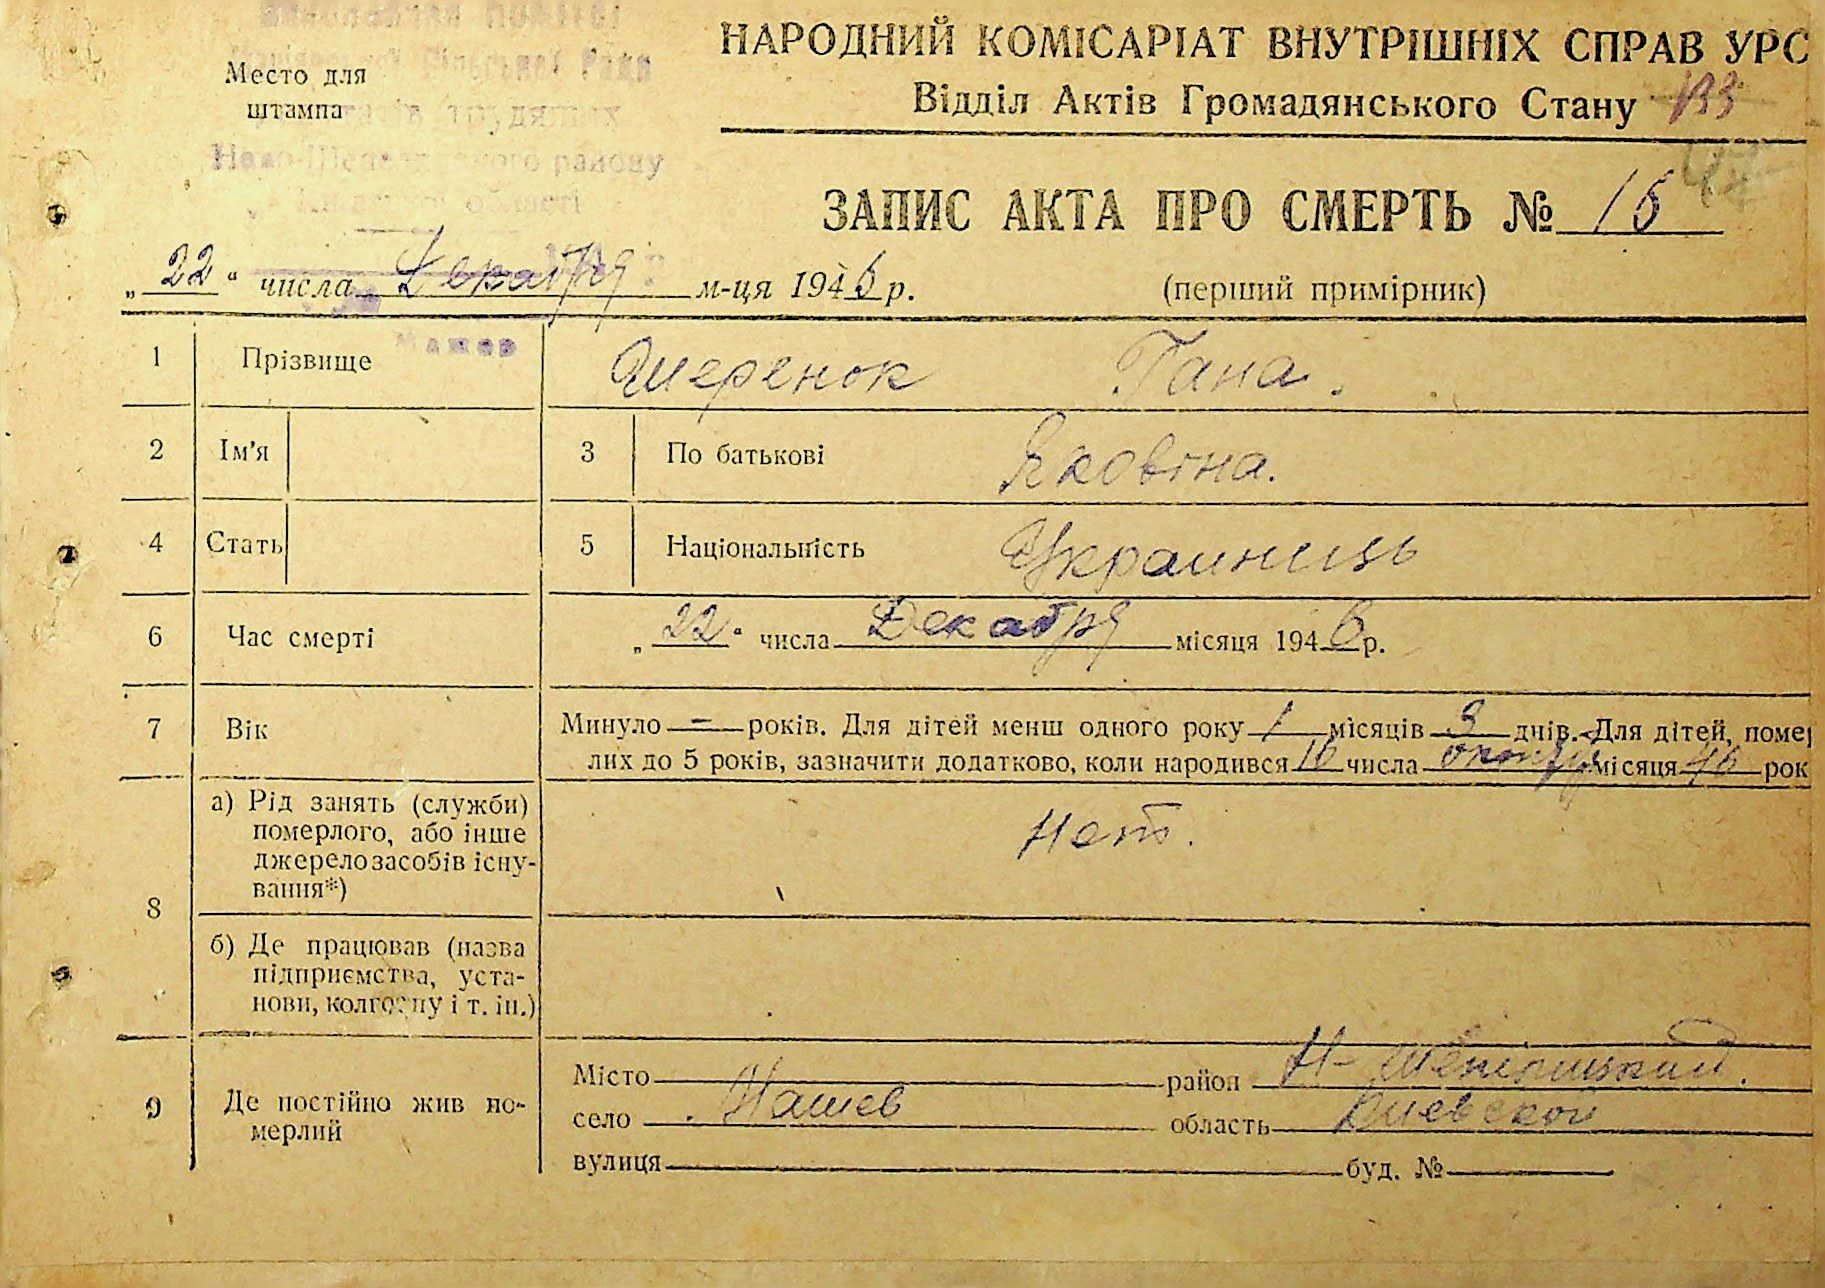 НАРОДНИЙ КОМІСАРІАТ ВНУТРІШНІХ СПРАВ УРС
Место для
штампа
Відділ Актів Громадянського Стану
трудящих
району
області
ЗАПИС АКТА ПРО СМЕРТЬ № 15
„22“ числа Декабря м-ця 1946 р.
(перший примірник)
1 Прізвище Шеренок Гана.
2 Ім'я 3 По батькові Яковіна.
4 Стать 5 Національність Украинись
6 Час смерті „22“ числа Декабря місяця 1946 р.
7 Вік Минуло — років. Для дітей менш одного року 1 місяців 3 днів. Для дітей, помер
лих до 5 років, зазначити додатково, коли народився 16 числа місяця 46 рок
8 а) Рід занять (служби)
померлого, або інше
джерело засобів існу-
вання*)
Нет.
б) Де працював (назва
підприємства, уста-
нови, колгоспу і т. ін.)
9 Де постійно жив по-
мерлий
Місто район Н-
село область Киевской
вулиця буд. №